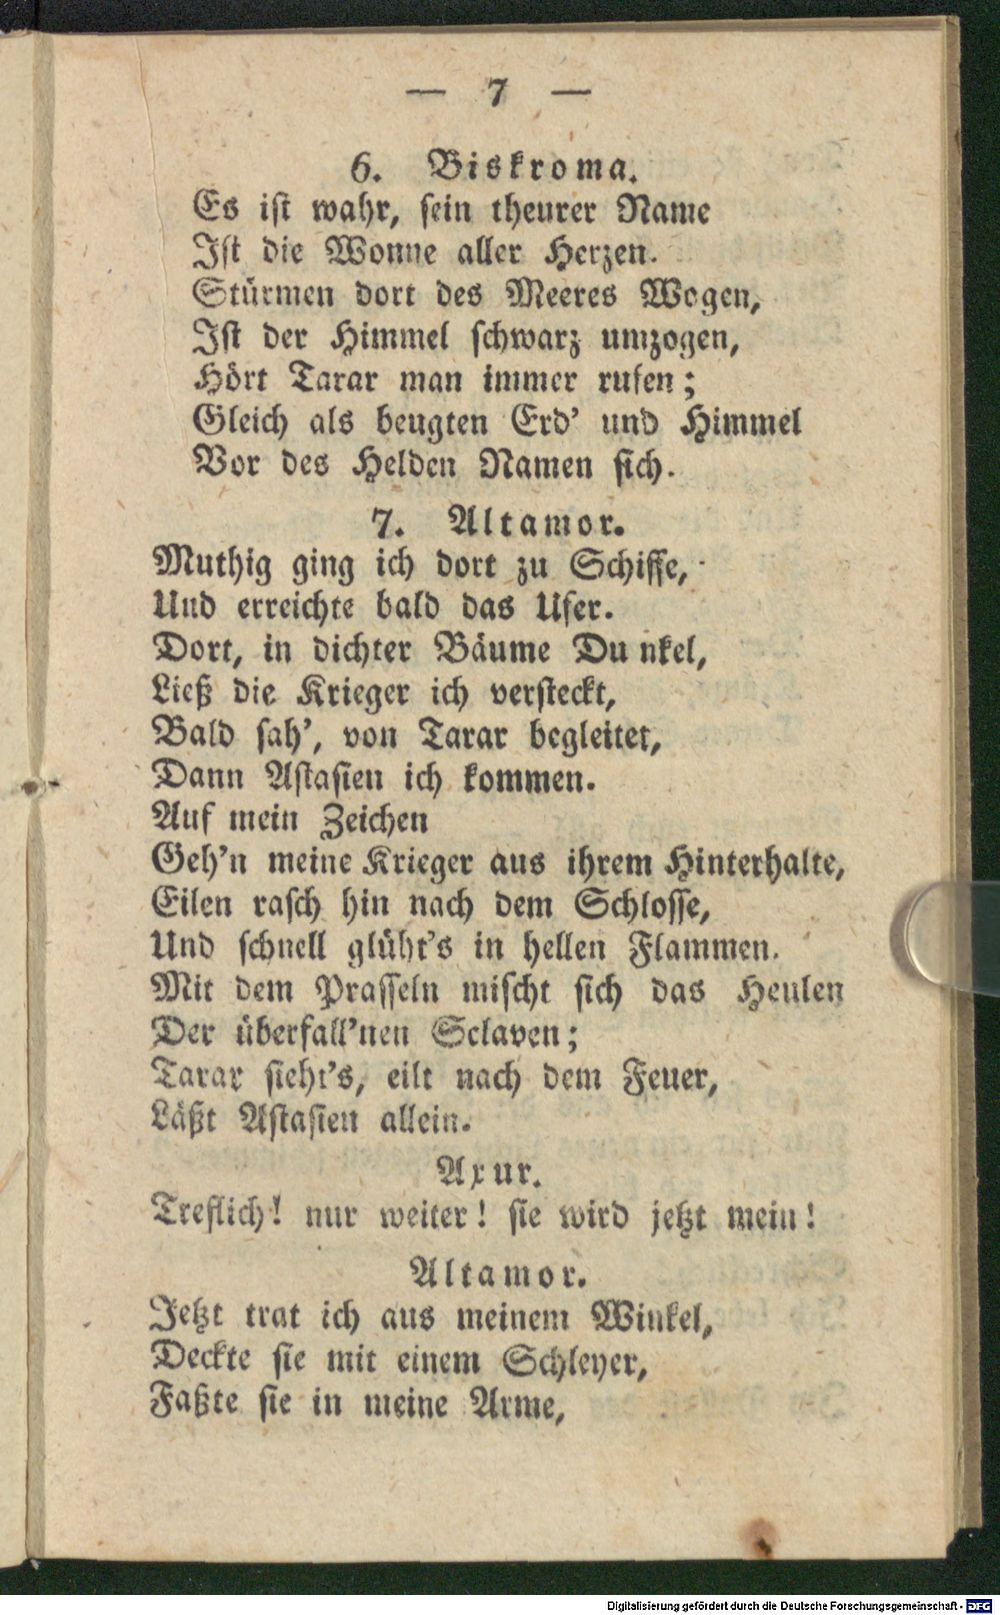 — 7 —
6. Biskroma.
Es ist wahr, sein theurer Name
Ist die Wonne aller Herzen.
Stürmen dort des Meeres Wogen,
Ist der Himmel schwarz umzogen,
Hört Tarar man immer rufen;
Gleich als beugten Erd' und Himmel
Vor des Helden Namen sich.
7. Altamor.
Muthig ging ich dort zu Schiffe,
Und erreichte bald das Ufer.
Dort, in dichter Bäume Du nkel,
Ließ die Krieger ich versteckt,
Bald sah', von Tarar begleitet,
Dann Astasien ich kommen.
Auf mein Zeichen
Geh'n meine Krieger aus ihrem Hinterhalte,
Eilen rasch hin nach dem Schlosse,
Und schnell glüht's in hellen Flammen.
Mit dem Prasseln mischt sich das Heulen
Der überfall'nen Sclaven;
Tarar sieht's, eilt nach dem Feuer,
Läßt Astasien allein.
Axur.
Treflich! nur weiter! sie wird jetzt mein!
Altamor.
Jetzt trat ich aus meinem Winkel,
Deckte sie mit einem Schleyer,
Faßte sie in meine Arme,
Digitalisierung gefördert durch die Deutsche Forschungsgemeinschaft - DFG